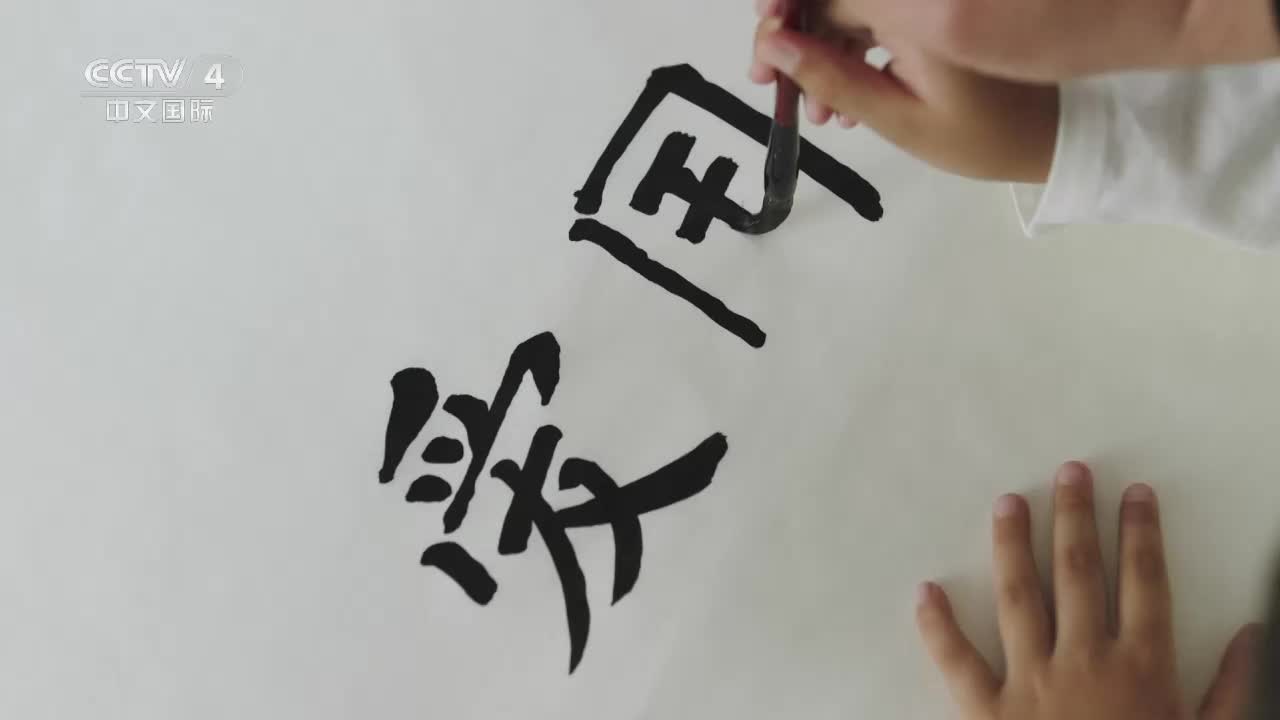 CCTV 4
中文国际
爱国